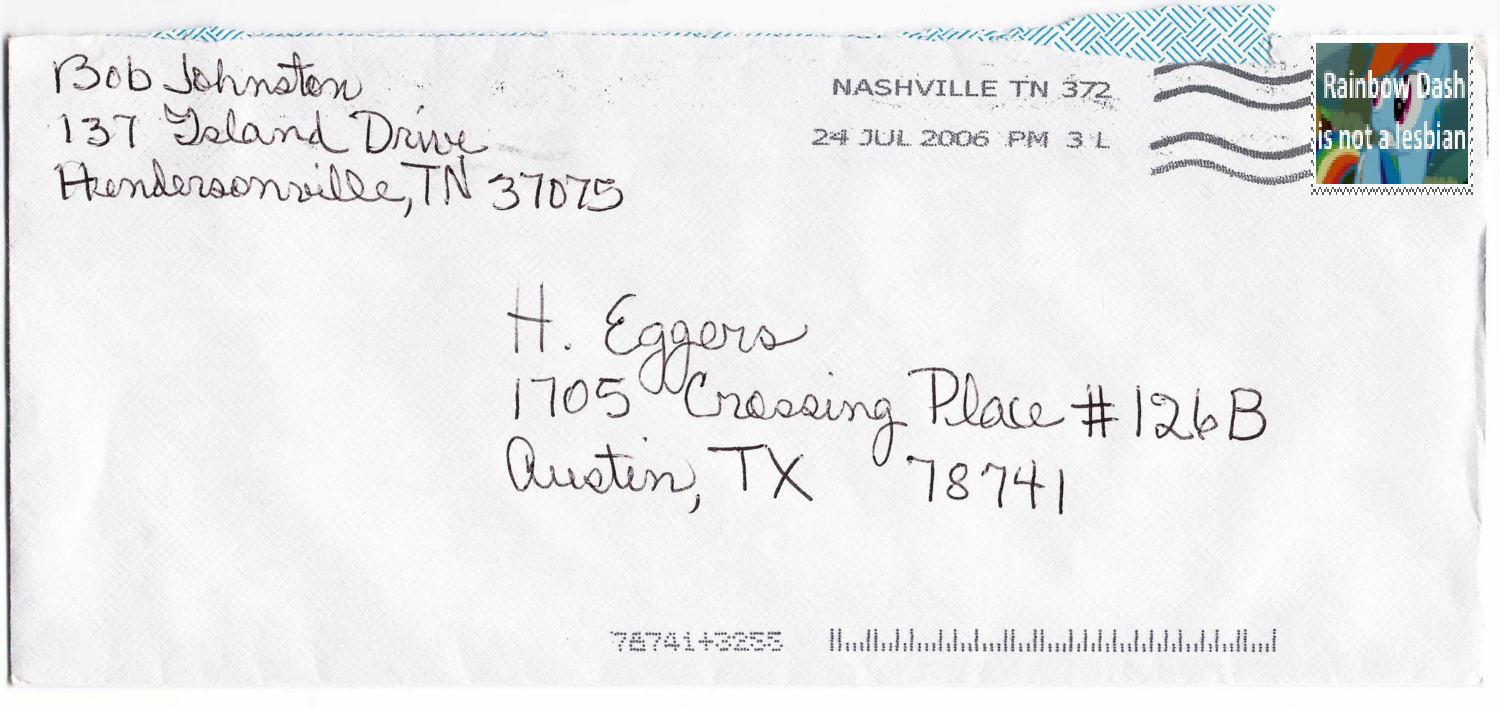 Bob Johnston
137 Island Drive
Hendersonville, TN 37075
NASHVILLE TN 372
24 JUL 2006 PM 3 L
Rainbow Dash
is not a lesbian
H. Eggers
1705 Crossing Place #126B
Austin, TX 78741
78741+3255